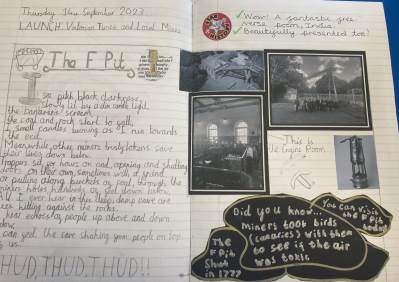 Thursday 14th September 2023
LAUNCH: Victorian Times and Local Mines
The F Pit
In pitch black darkness,
slowly lit by a dim candle light.
the canaries scream
the coal and rock start to spill,
small candles burning as I run towards
the end.
Meanwhile, other miners busily
their lives down below.
Trappers sit for hours on end, opening and shutting
doors on their own, sometimes with a friend
or pulling along buckets of coal, through the
All I ever hear in this deep, damp cave are
axes hitting against the rocks.
hear echoes of people up above and down
low.
the cave shaking from people on top
us...
THUD, THUD, THUD!!
Wow! A fantastic free
verse poem, India.
Beautifully presented too!
This is
the Engine Room
Did you know...
miners took birds
(canaries) with them
to see if the air
was toxic
You can visit
the F Pit
today!
The
F Pit
Shut
in 1777